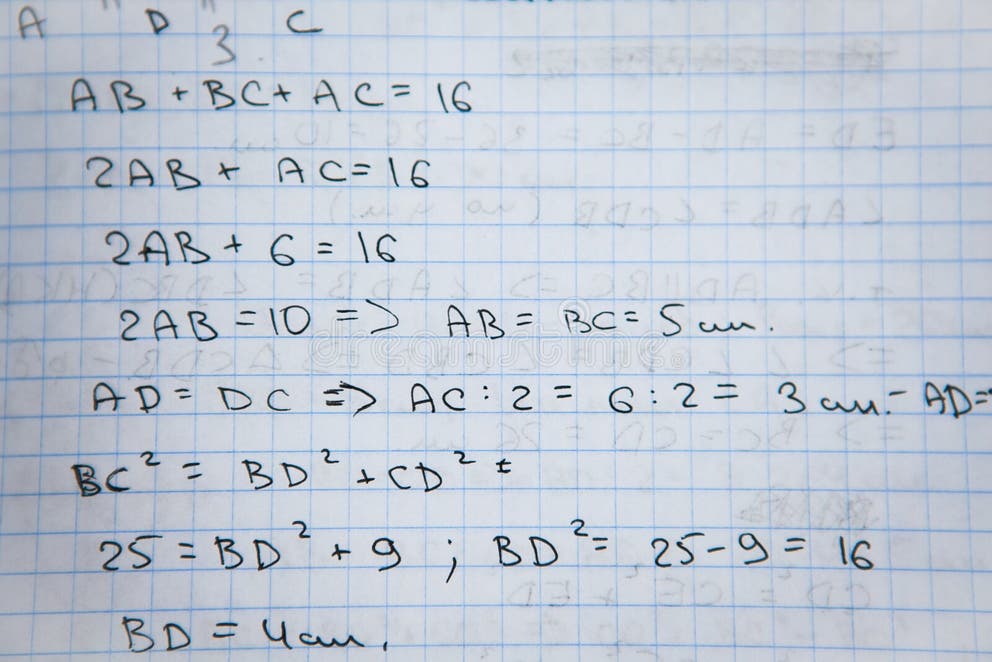 A D C
3
AB + BC + AC = 16
2AB + AC = 16
2AB + 6 = 16
2AB = 10 => AB = BC = 5 см.
AD = DC => AC : 2 = 6 : 2 = 3 см. - AD =
BC² = BD² + CD²
25 = BD² + 9 ; BD² = 25 - 9 = 16
BD = 4 см.
dreamstime